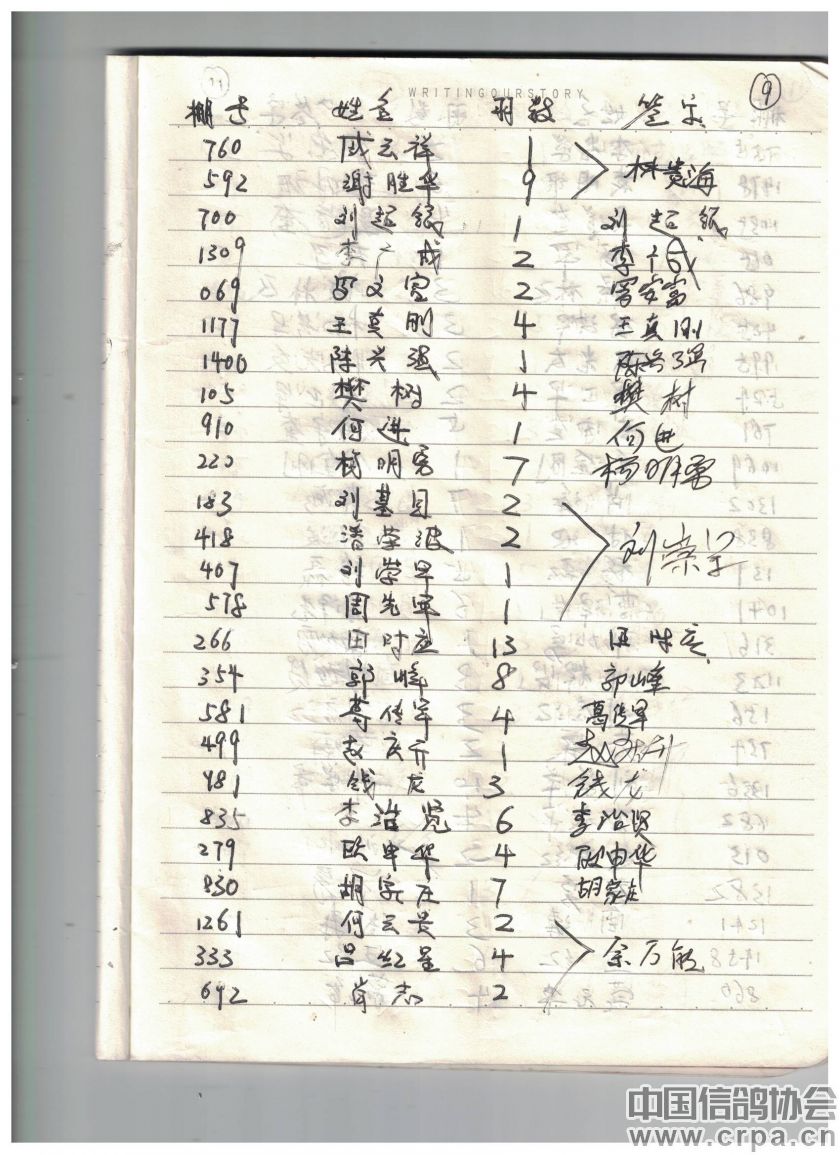 WRITINGOURSTORY
9
棚号 姓名 羽数 签字
760 成云祥 1
592 谢胜华 9 林贵海
700 刘起银 1 刘起银
1309 李广成 2 李广成
069 罗文富 2
1177 王真刚 4 王真刚
1400 陈兴强 1 陈兴强
105 樊树 4 樊树
910 何进 1 何进
220 杨明勇 7 杨明勇
183 刘基国 2
418 潘荣波 2 刘荣军
407 刘荣军 1
578 周先军 1
266 田时应 13 田时应
354 郭峰 8 郭峰
581 葛传军 4 葛传军
499 赵庆升 1 赵庆升
481 钱龙 3 钱龙
835 李治贤 6 李治贤
279 欧申华 4 欧申华
830 胡家庄 7 胡家庄
1261 何云贵 2
333 吕红星 4 余万能
642 肖志 2
中国信鸽协会
www.crpa.cn